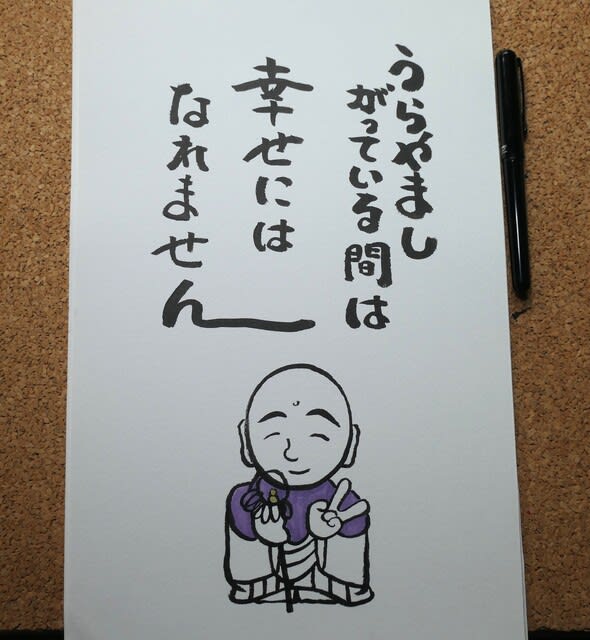 うらやまし
がっている間は
幸せには
なれません